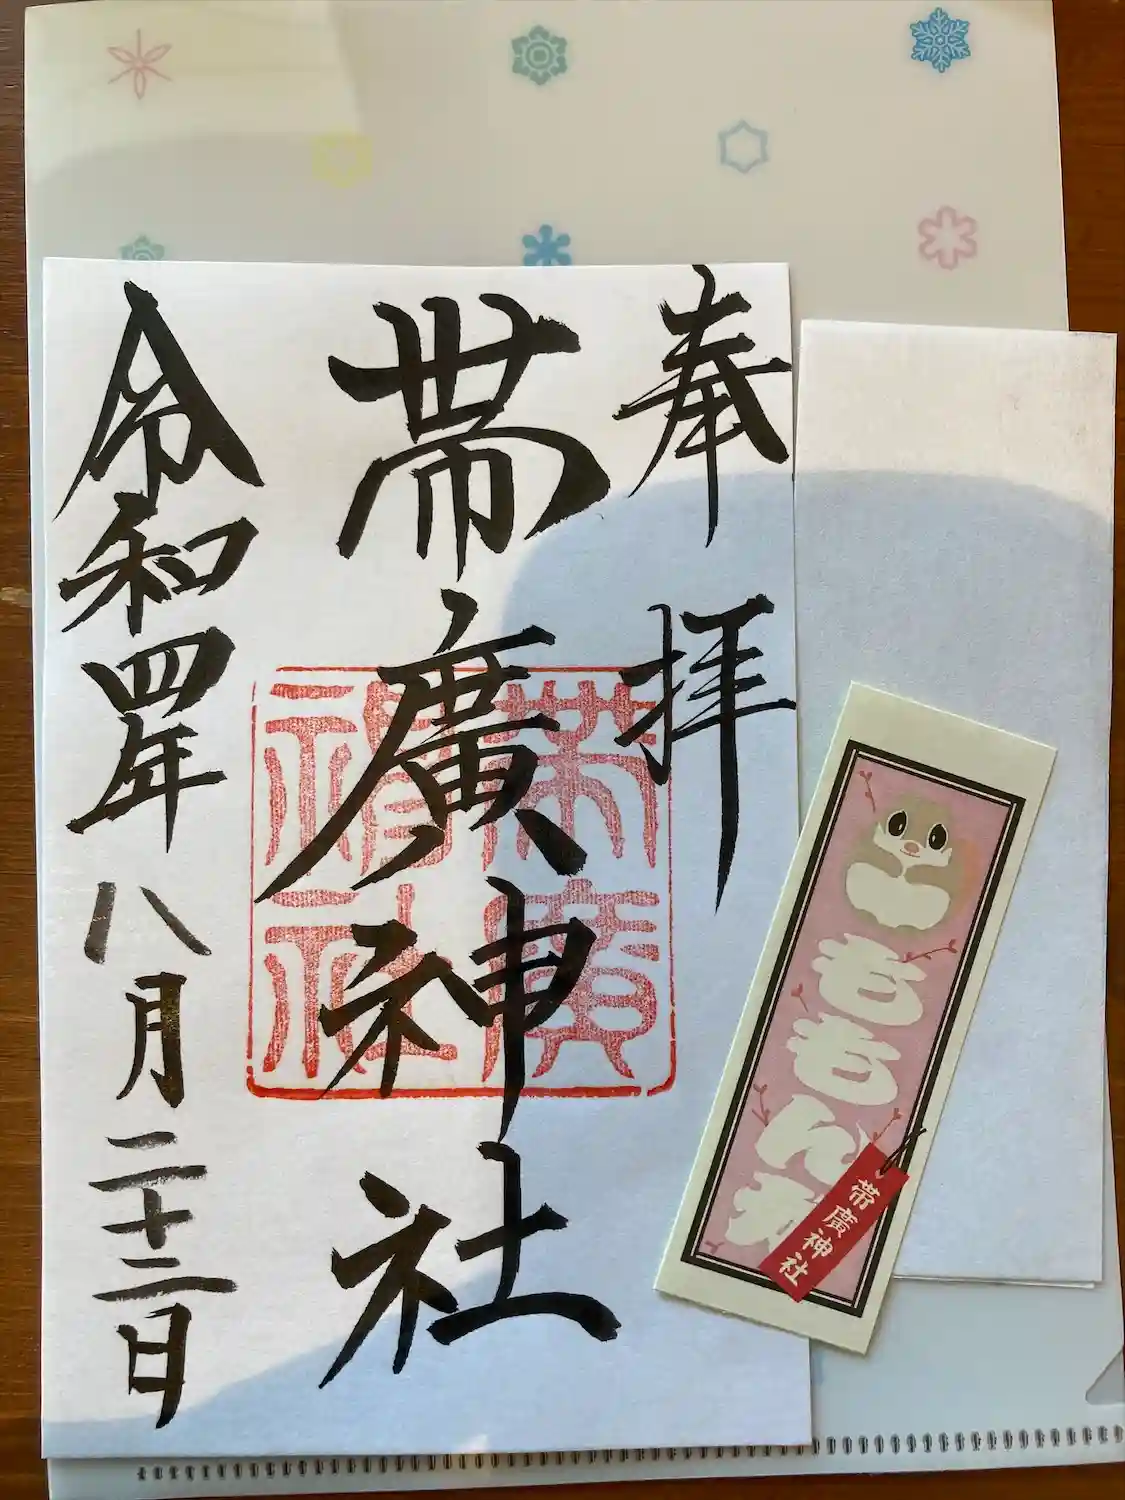 奉拝
帯廣神社
令和四年八月二十二日
帯廣
神社
ももんが
帯廣神社